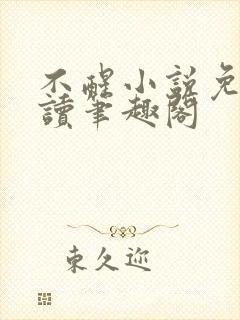 不醒小説免
讀筆趣閣
東久迩